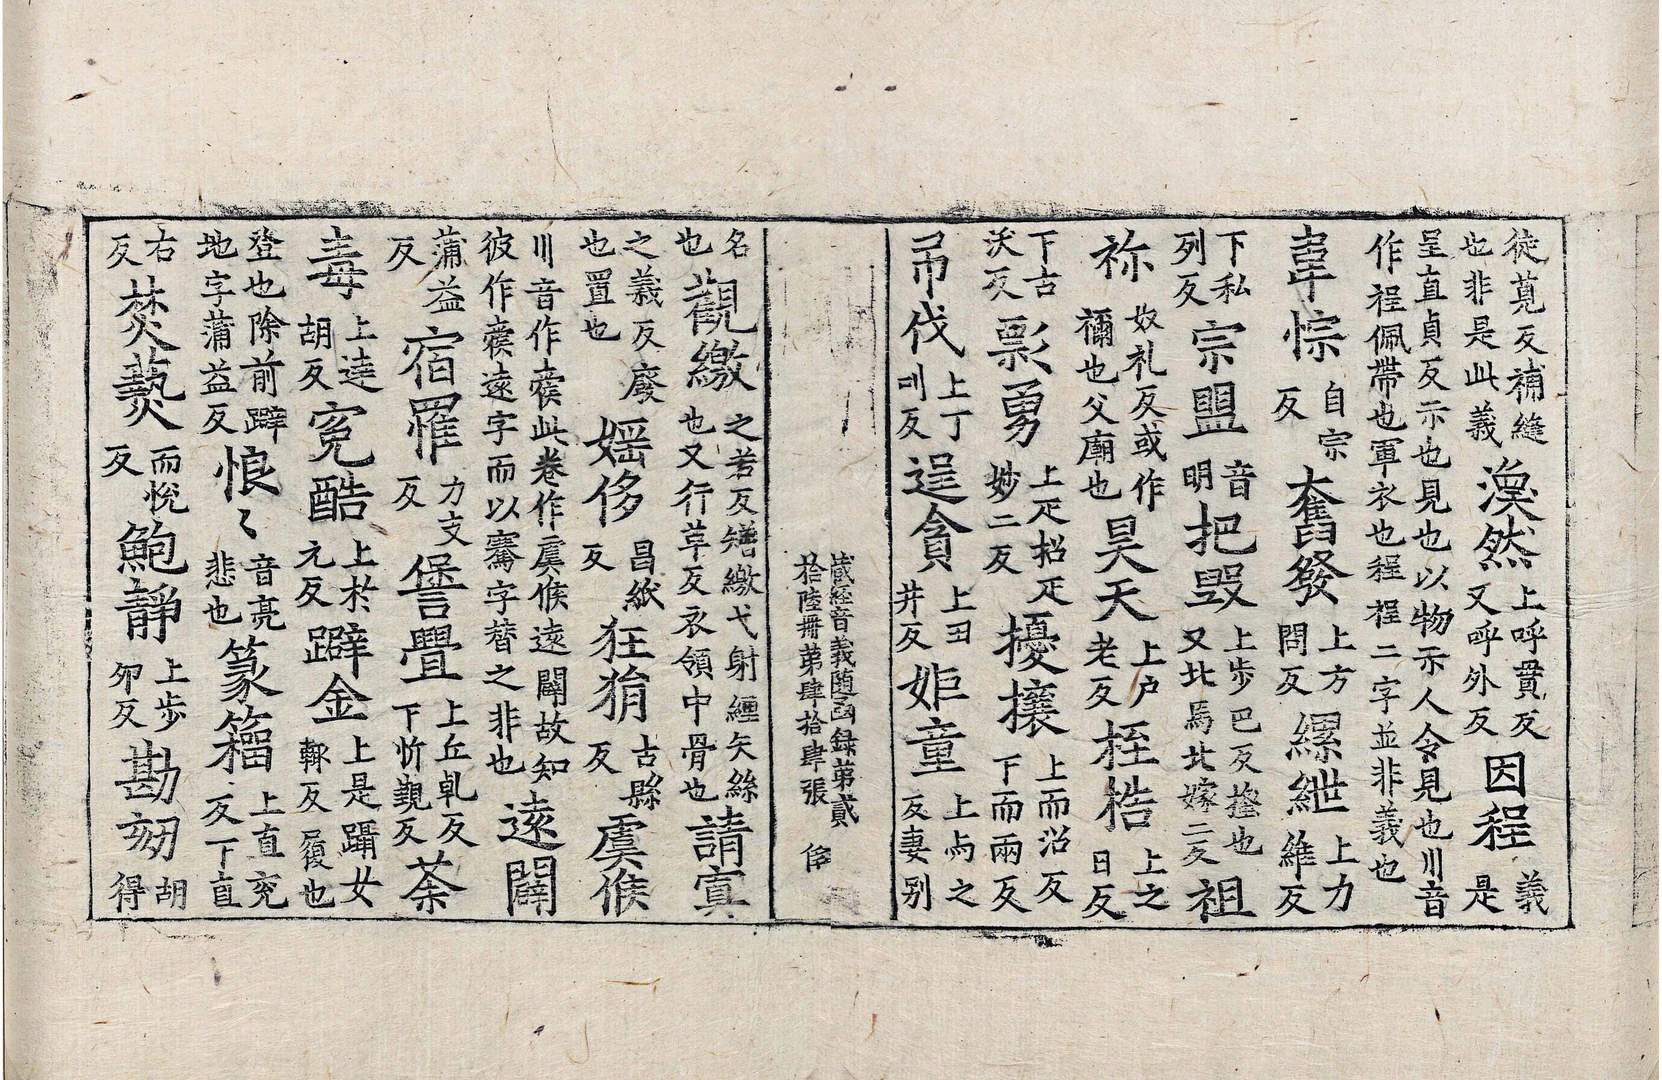 徒莧反補縫也非是此義渙然上呼貫反又呼外反因程義是
呈直貞反示也見也以物示人令見也川音作裎佩帶也軍衣也程裎二字並非義也
韋悰自宗反奮發上方問反縲紲上力維反
下私列反宗盟音明把毀上步巴反搔也又北馬北嫁二反祖
祢奴礼反或作禰也父廟也昊天上户老反桎梏上之日反
下古沃反剽勇上疋招疋妙二反擾攘上而沼反下而兩反
弔伐上丁叫反逞貪上丑井反姫童上与之反妻别
藏經音義随函録第貳拾陸冊第肆拾肆張
名也觀繳之若反矰繳弋射纏矢絲也又行革反衣領中骨也請寘
之義反廢也置也婬侈昌紙反狂狷古縣反虞候
川音作褒此卷作虞候遠闢故知彼作褒遠字而以騫字替之非也遠闢
蒲益反宿罹力支反諐舋上丘乹反下忻覲反荼
毒上達胡反寃酷上於元反躃金上是躡女輒反履也
登也除前躃地字蒲益反悢〻音亮悲也篆籕上直兖反下直
右反焚爇而悅反鮑靜上步夘反勘刼胡得